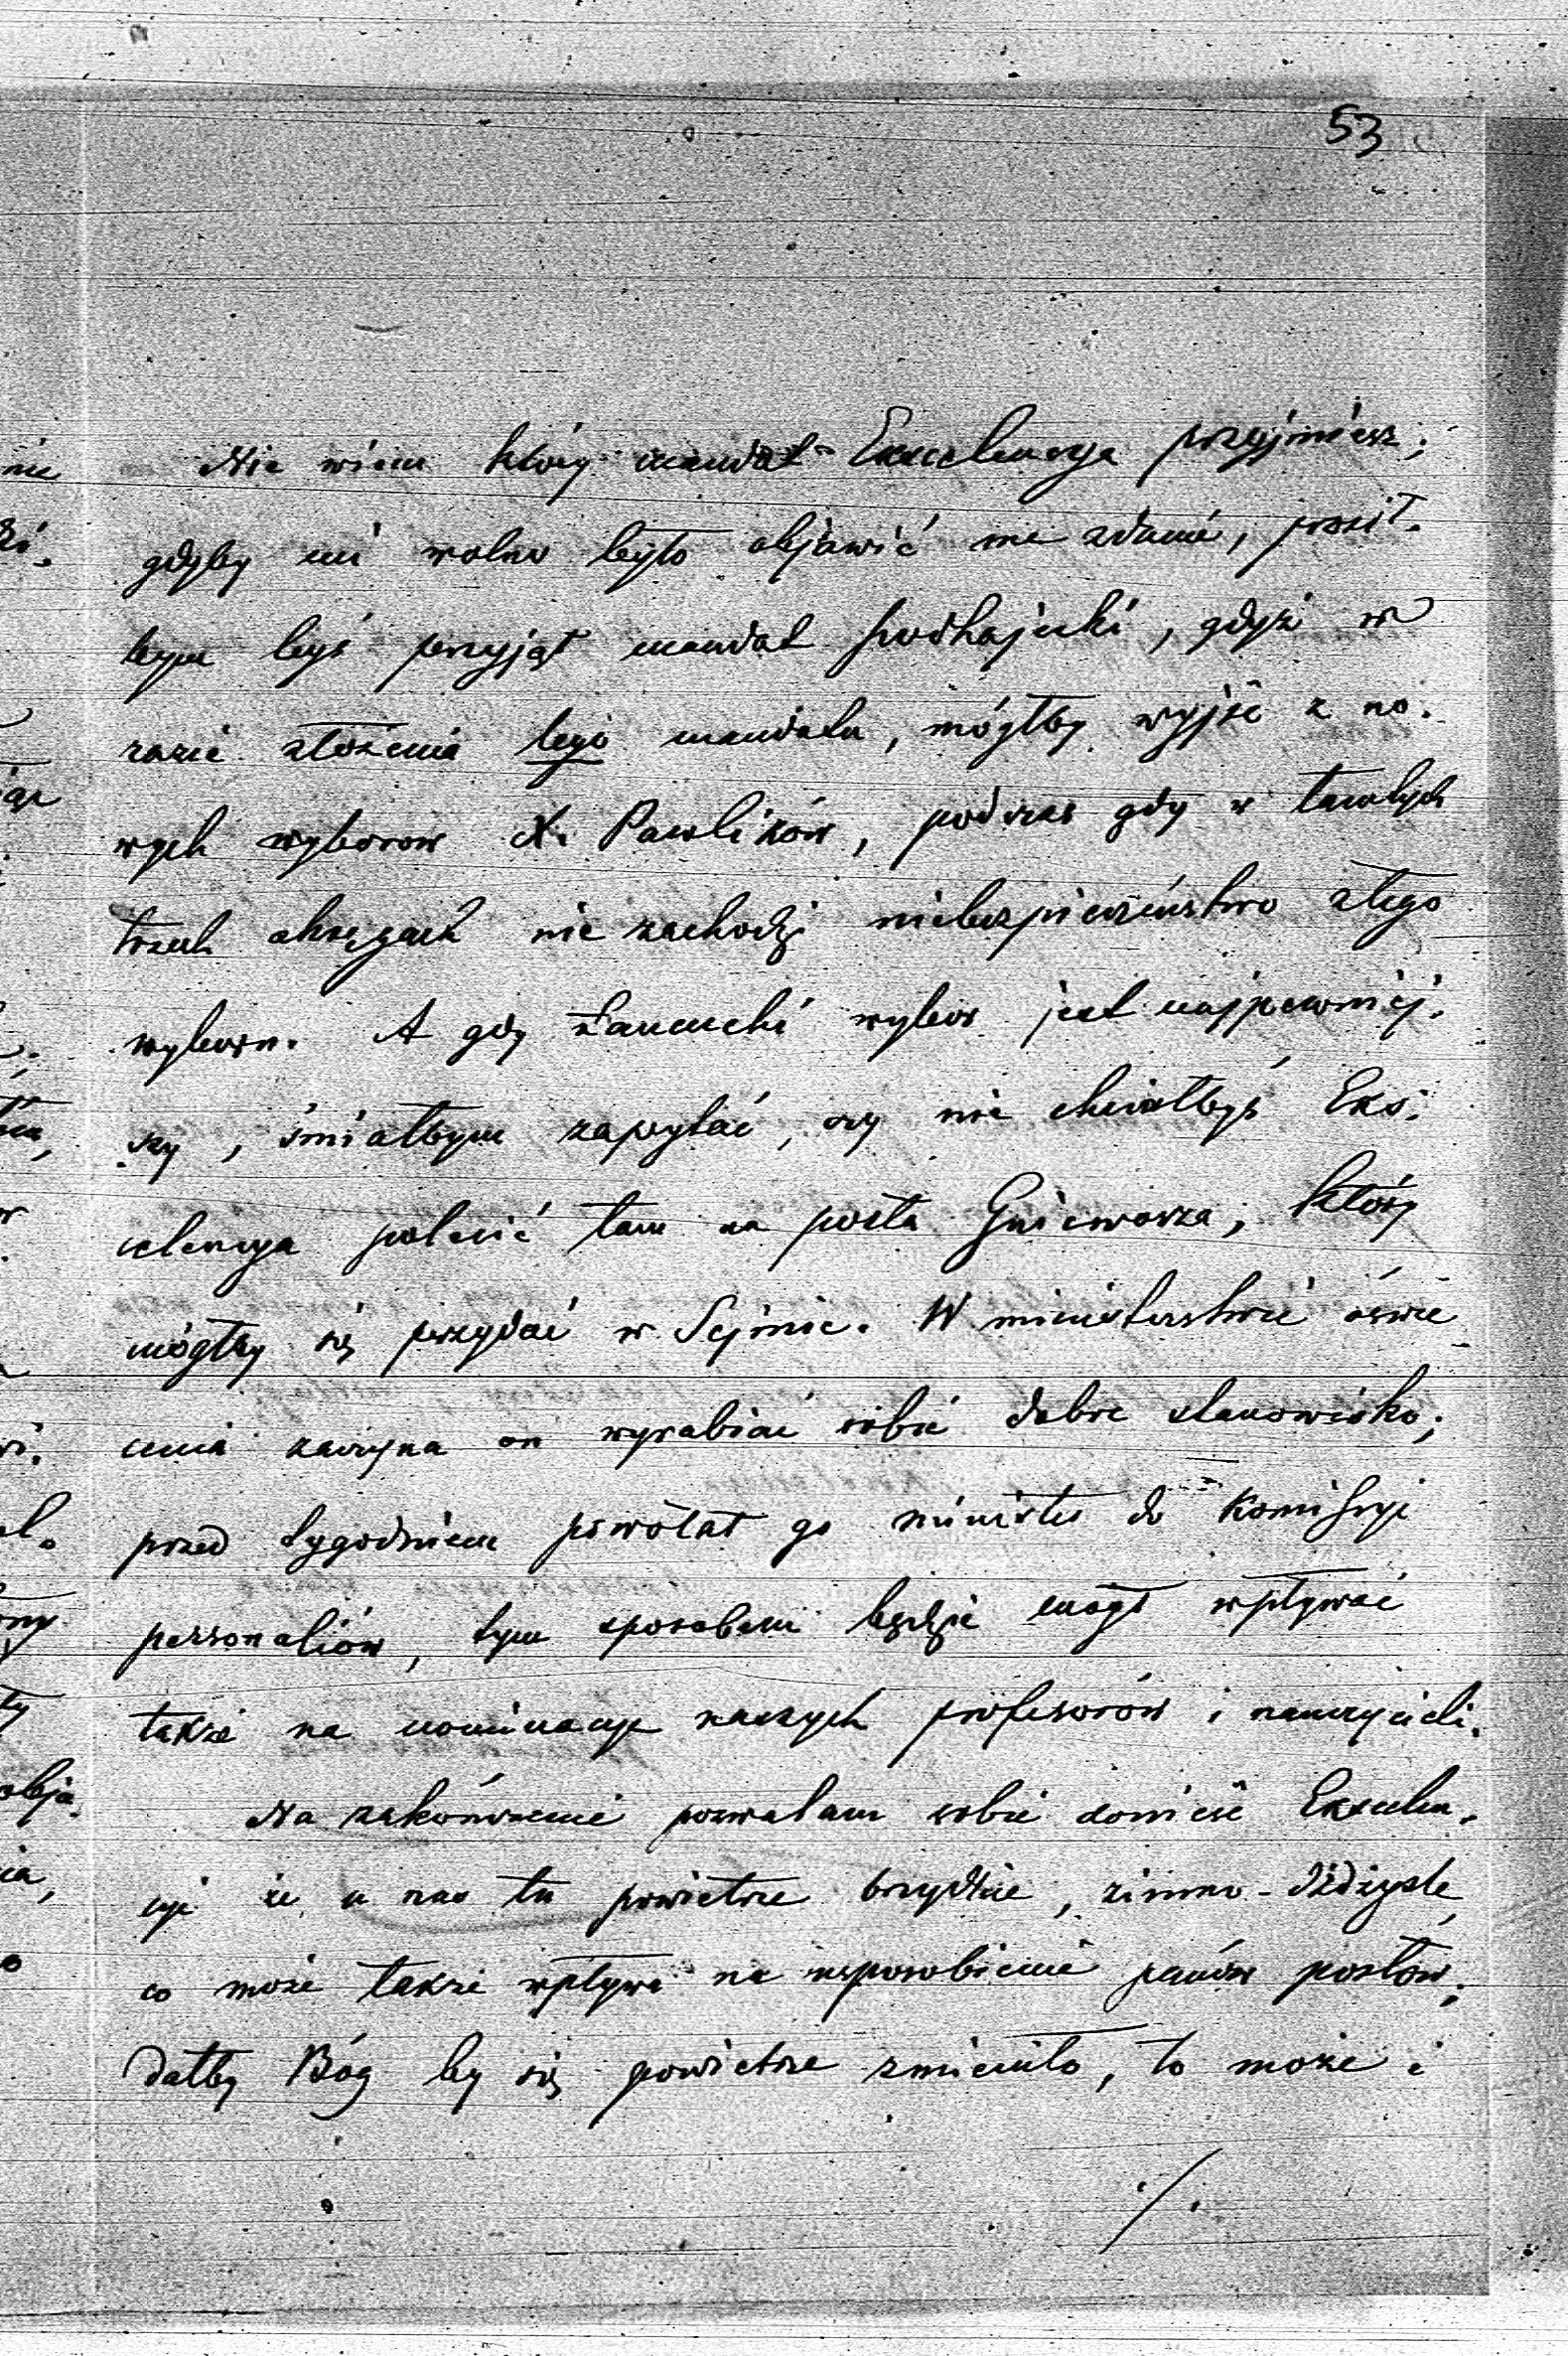 53
Nie wiem który mandat Excelencya przyjmiesz;
gdyby mi wolno było objawić me zdanie, prosił-
bym byś przyjął mandat podhajecki, gdyż w
razie złożenia tego mandatu, mógłby wyjść z no-
wych wyborow X. Pawlików, podczas gdy w tamtych
trzech okręgach nie zachodzi niebezpieczeństwo złego
wyboru. A gdy Łańcucki wybor jest najpewniej-
szy, śmiałbym zapytać, czy nie chciałbyś Eks-
celencya polecić tam na posła Gniewosza, który
mógłby się przydać w Sejmie. W ministerstwie oświe
cenia zaczyna on wyrabiać sobie dobre stanowisko;
przed tygodniem powołał go minister do Komissyi
personaliów, tym sposobem będzie mógł wpływać
także na nominacye naszych profesorów i nauczycieli.
Na zakończenie pozwalam sobie donieść Excelen-
cyi że u nas tu powietrze brzydkie, zimno-dżdżyste,
co może także wpływa na usposobienie panów posłów;
dałby Bóg by się powietrze zmieniło, to może i
./.